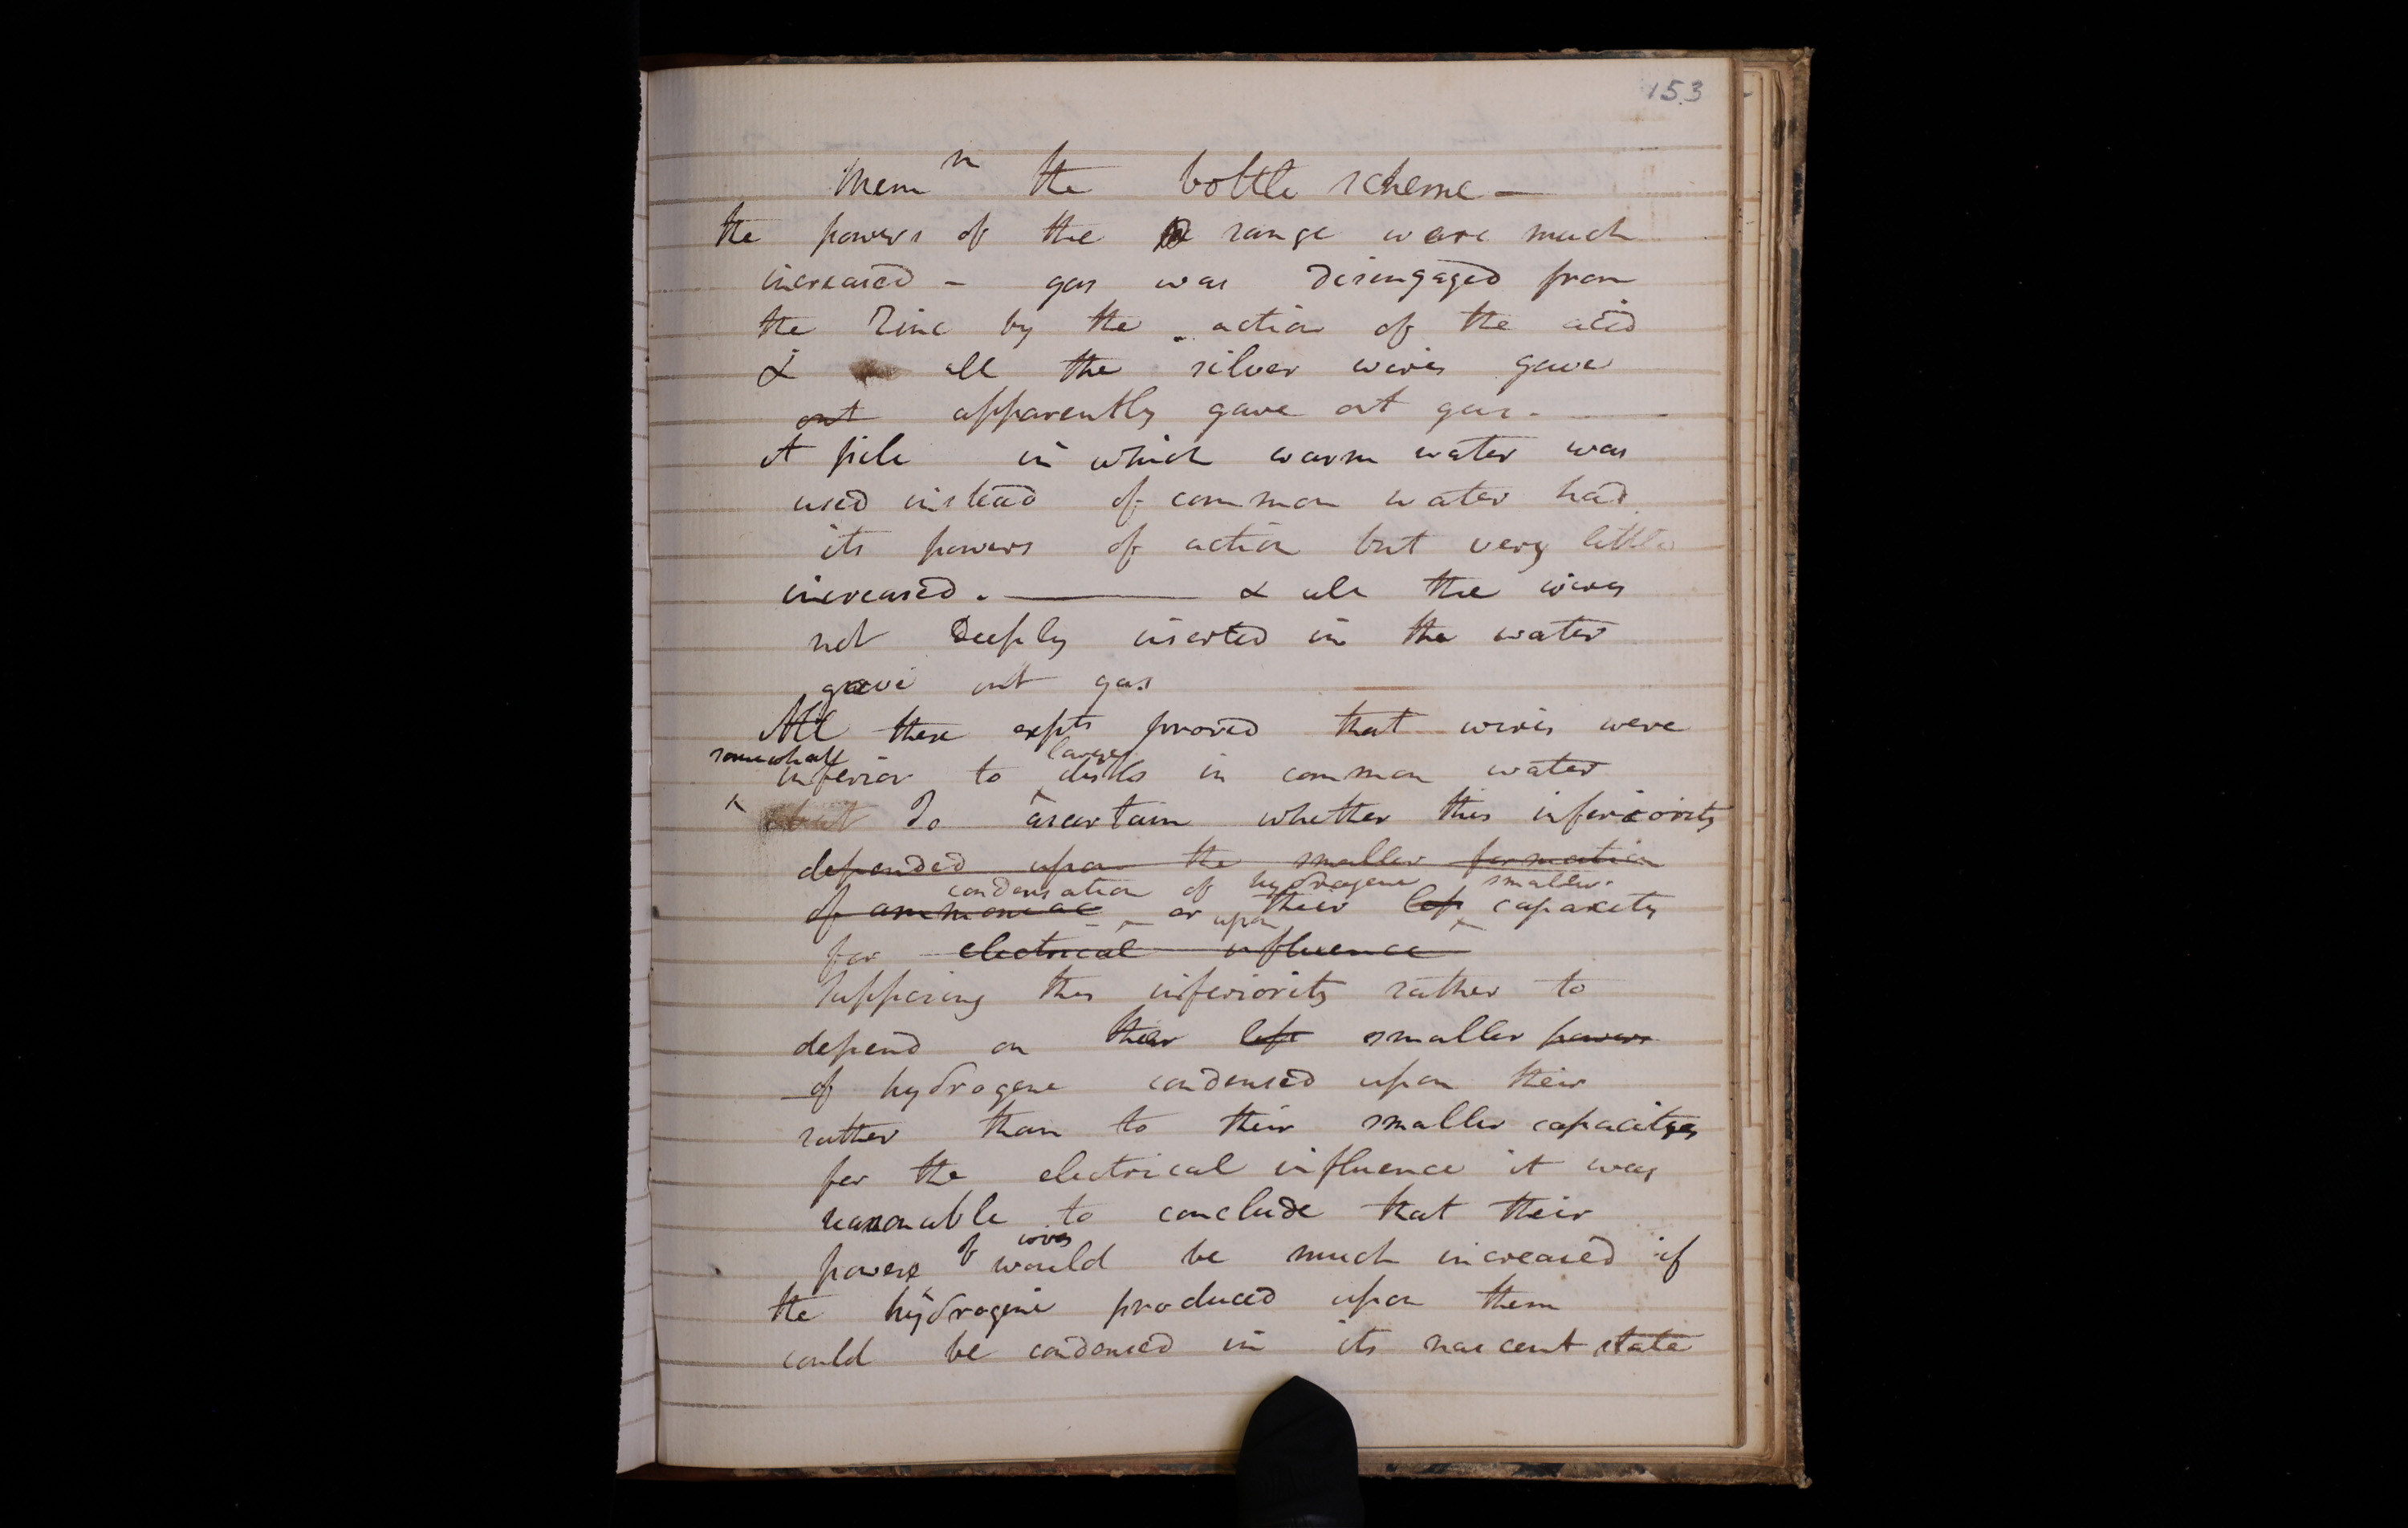 153
Mem n the bottle scheme -
the powers of the range were much
increased - gas was disengaged from
the Zinc by the action of the acid
& all the silver wires gave
out apparently gave out gas.
A pile in which warm water was
used instead of common water had
its powers of action but very little
increased. & all the wires
not deeply inserted in the water
gave out gas
All these expts proved that wires were
somewhat inferior to larger disks in common water
but To ascertain whether this inferiority
depended upon the smaller formation
condensation of hydrogene smaller
of ammoniac - or upon their less capacity
for electrical influence
Supposing this inferiority rather to
depend on their less smaller powers
of hydrogene condensed upon their
rather than to their smaller capacities
for the electrical influence it was
reasonable to conclude that their
powers of wires would be much increased if
the hydrogene produced upon them
could be condensed in its nascent state